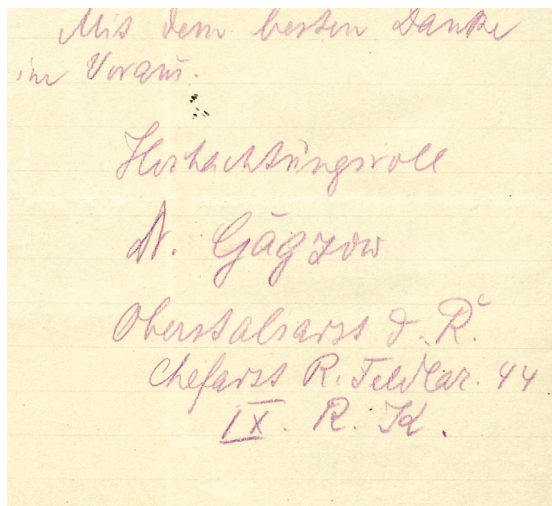 Mit dem besten Danke
im Voraus.
Hochachtungsvoll
Dr. Gägzow
Oberstabsarzt d. R.
Chefarzt R. Feldlaz. 44
IX. R. K.